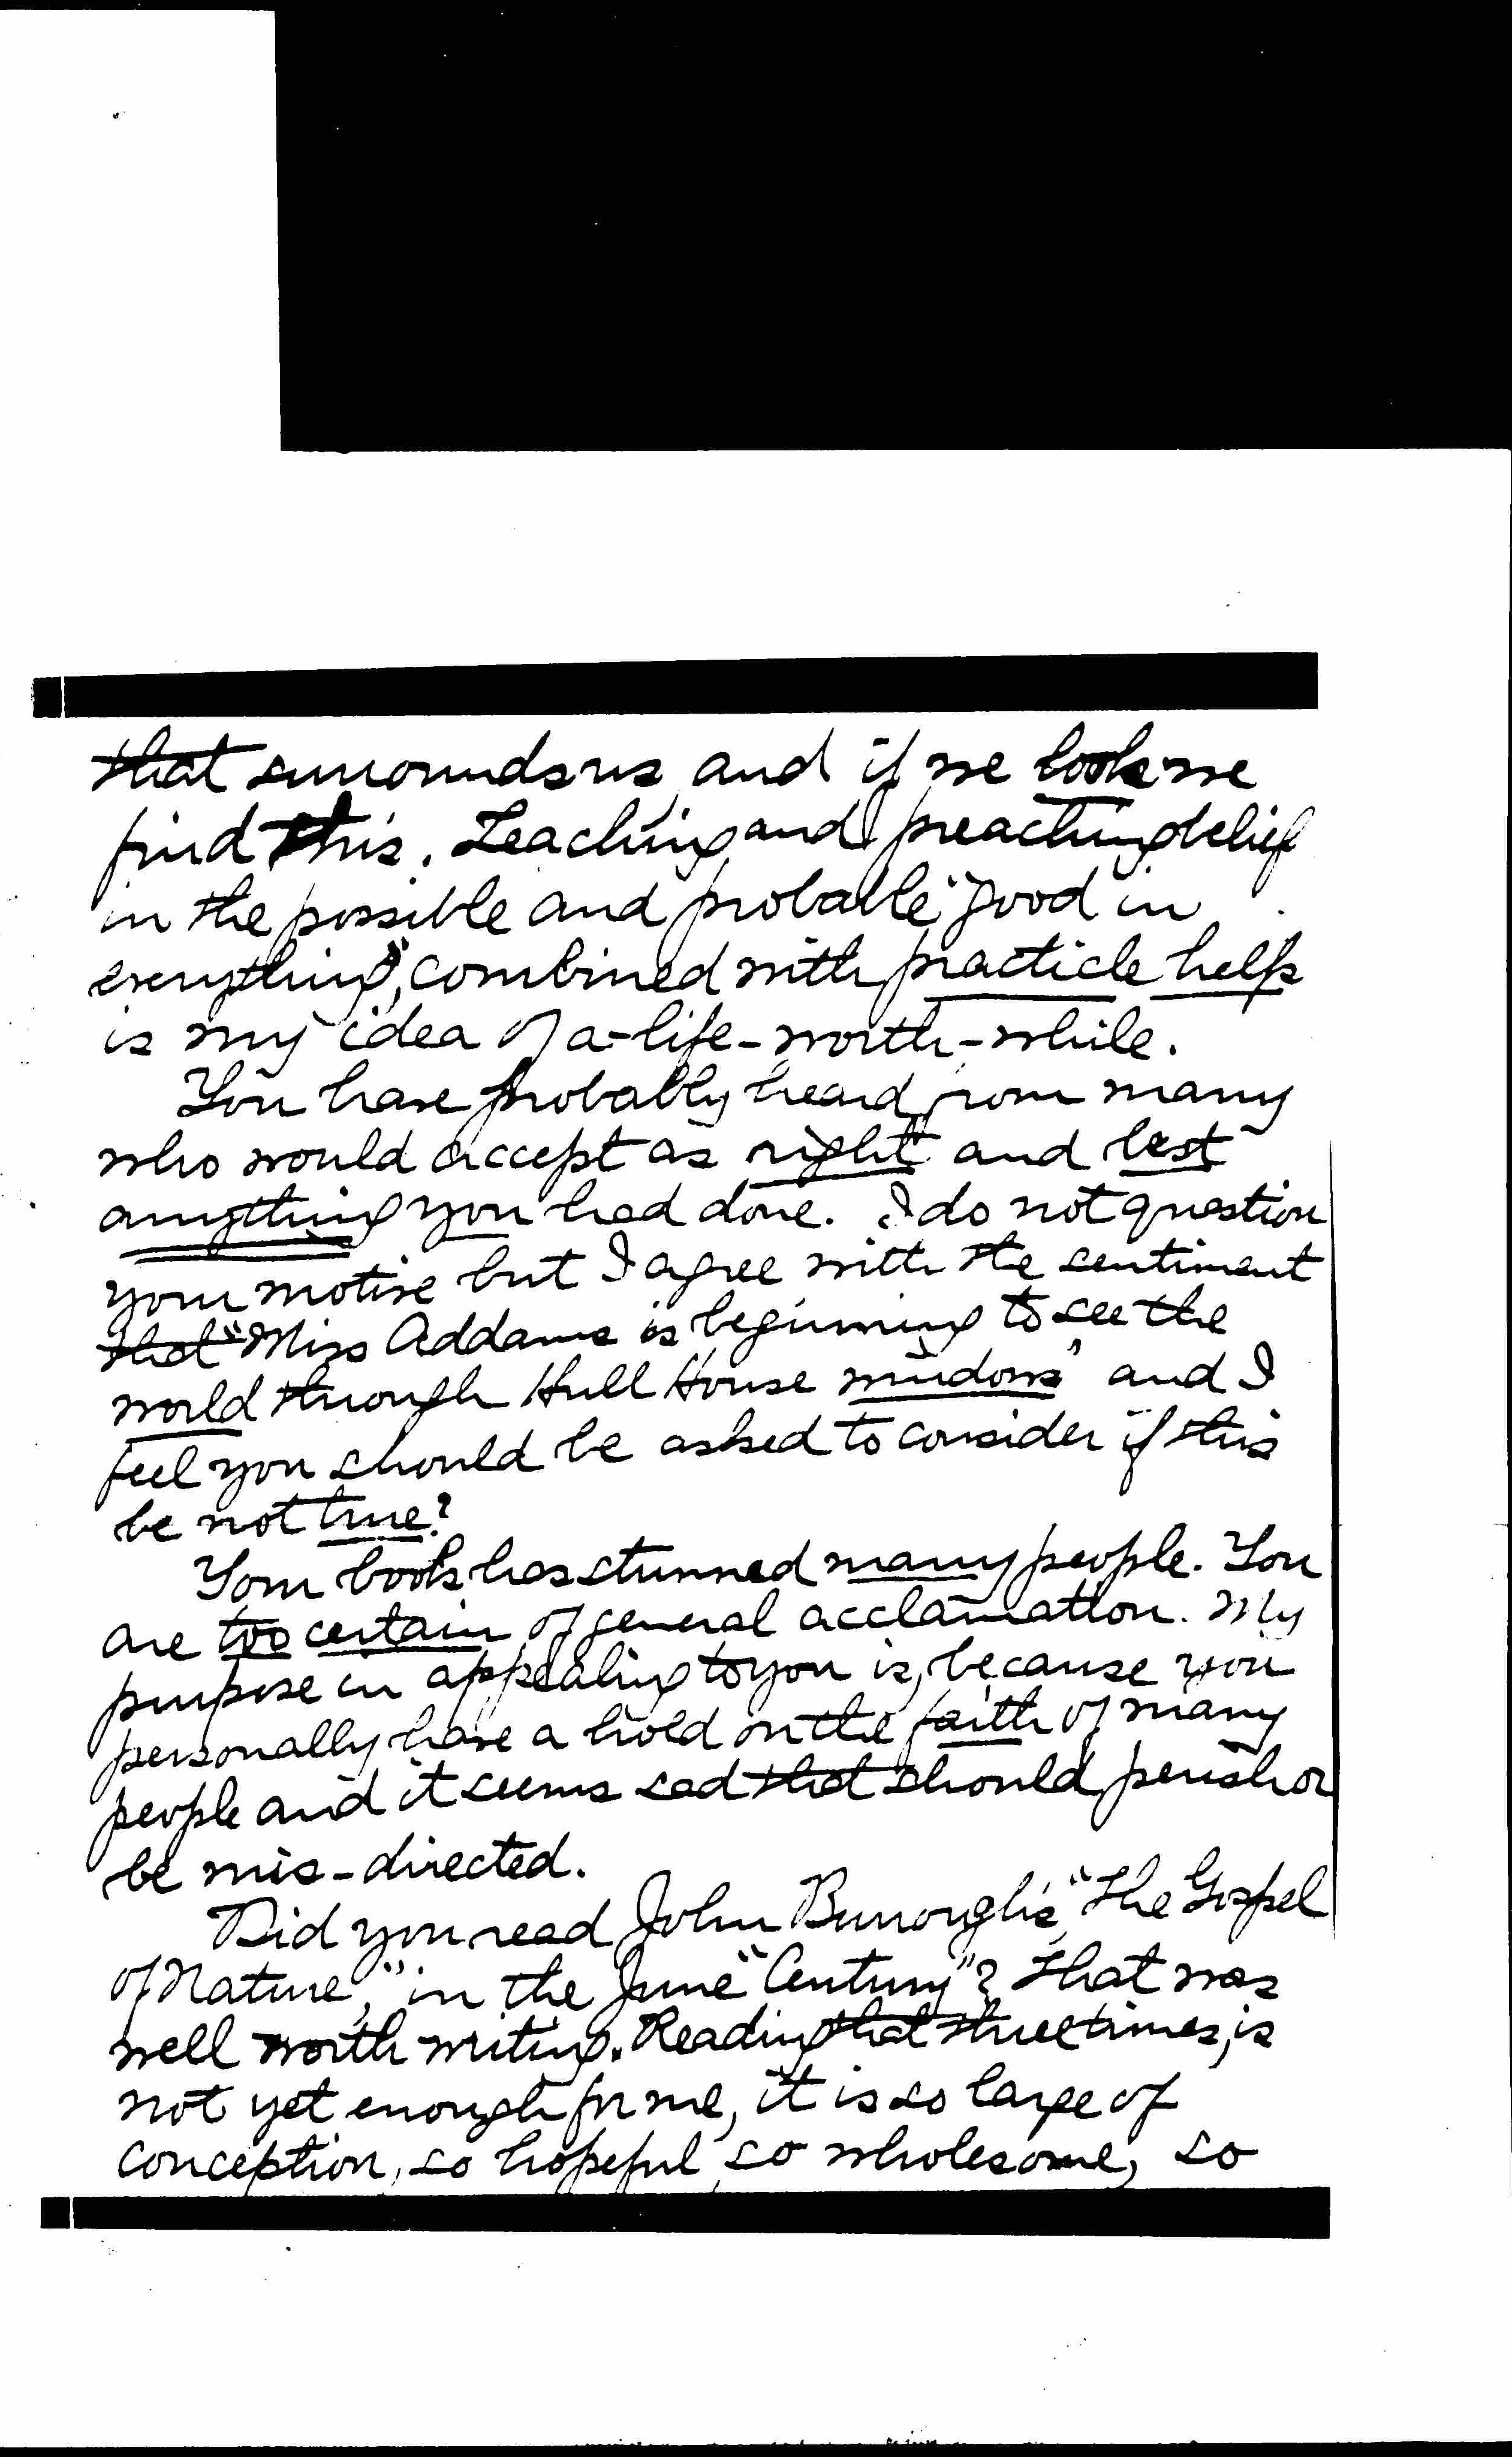 that surrounds us, and if we look we
find this. Teaching and preaching belief
in the possible and probable "good in
everything", combined with practicle help
is my idea of a-life-worth-while.
You have probably heard from many
who would accept as right and best
anything you had done. I do not question
your motive but I agree with the sentiment
that "Miss Addams is beginning to see the
world through Hull House windows" and I
feel you should be asked to consider if this
be not true?
Your book has stunned many people. You
are too certain of general acclamation. My
purpose in appealing to you is, because you
personally have a hold on the faith of many
people and it seems sad that should perish or
be mis-directed.
Did you read John Burrough's, "The Gospel
of Nature," in the June "Century"? That was
well worth writing. Reading that three times, is
not yet enough for me, it is so large of
conception, so hopeful, so wholesome, so